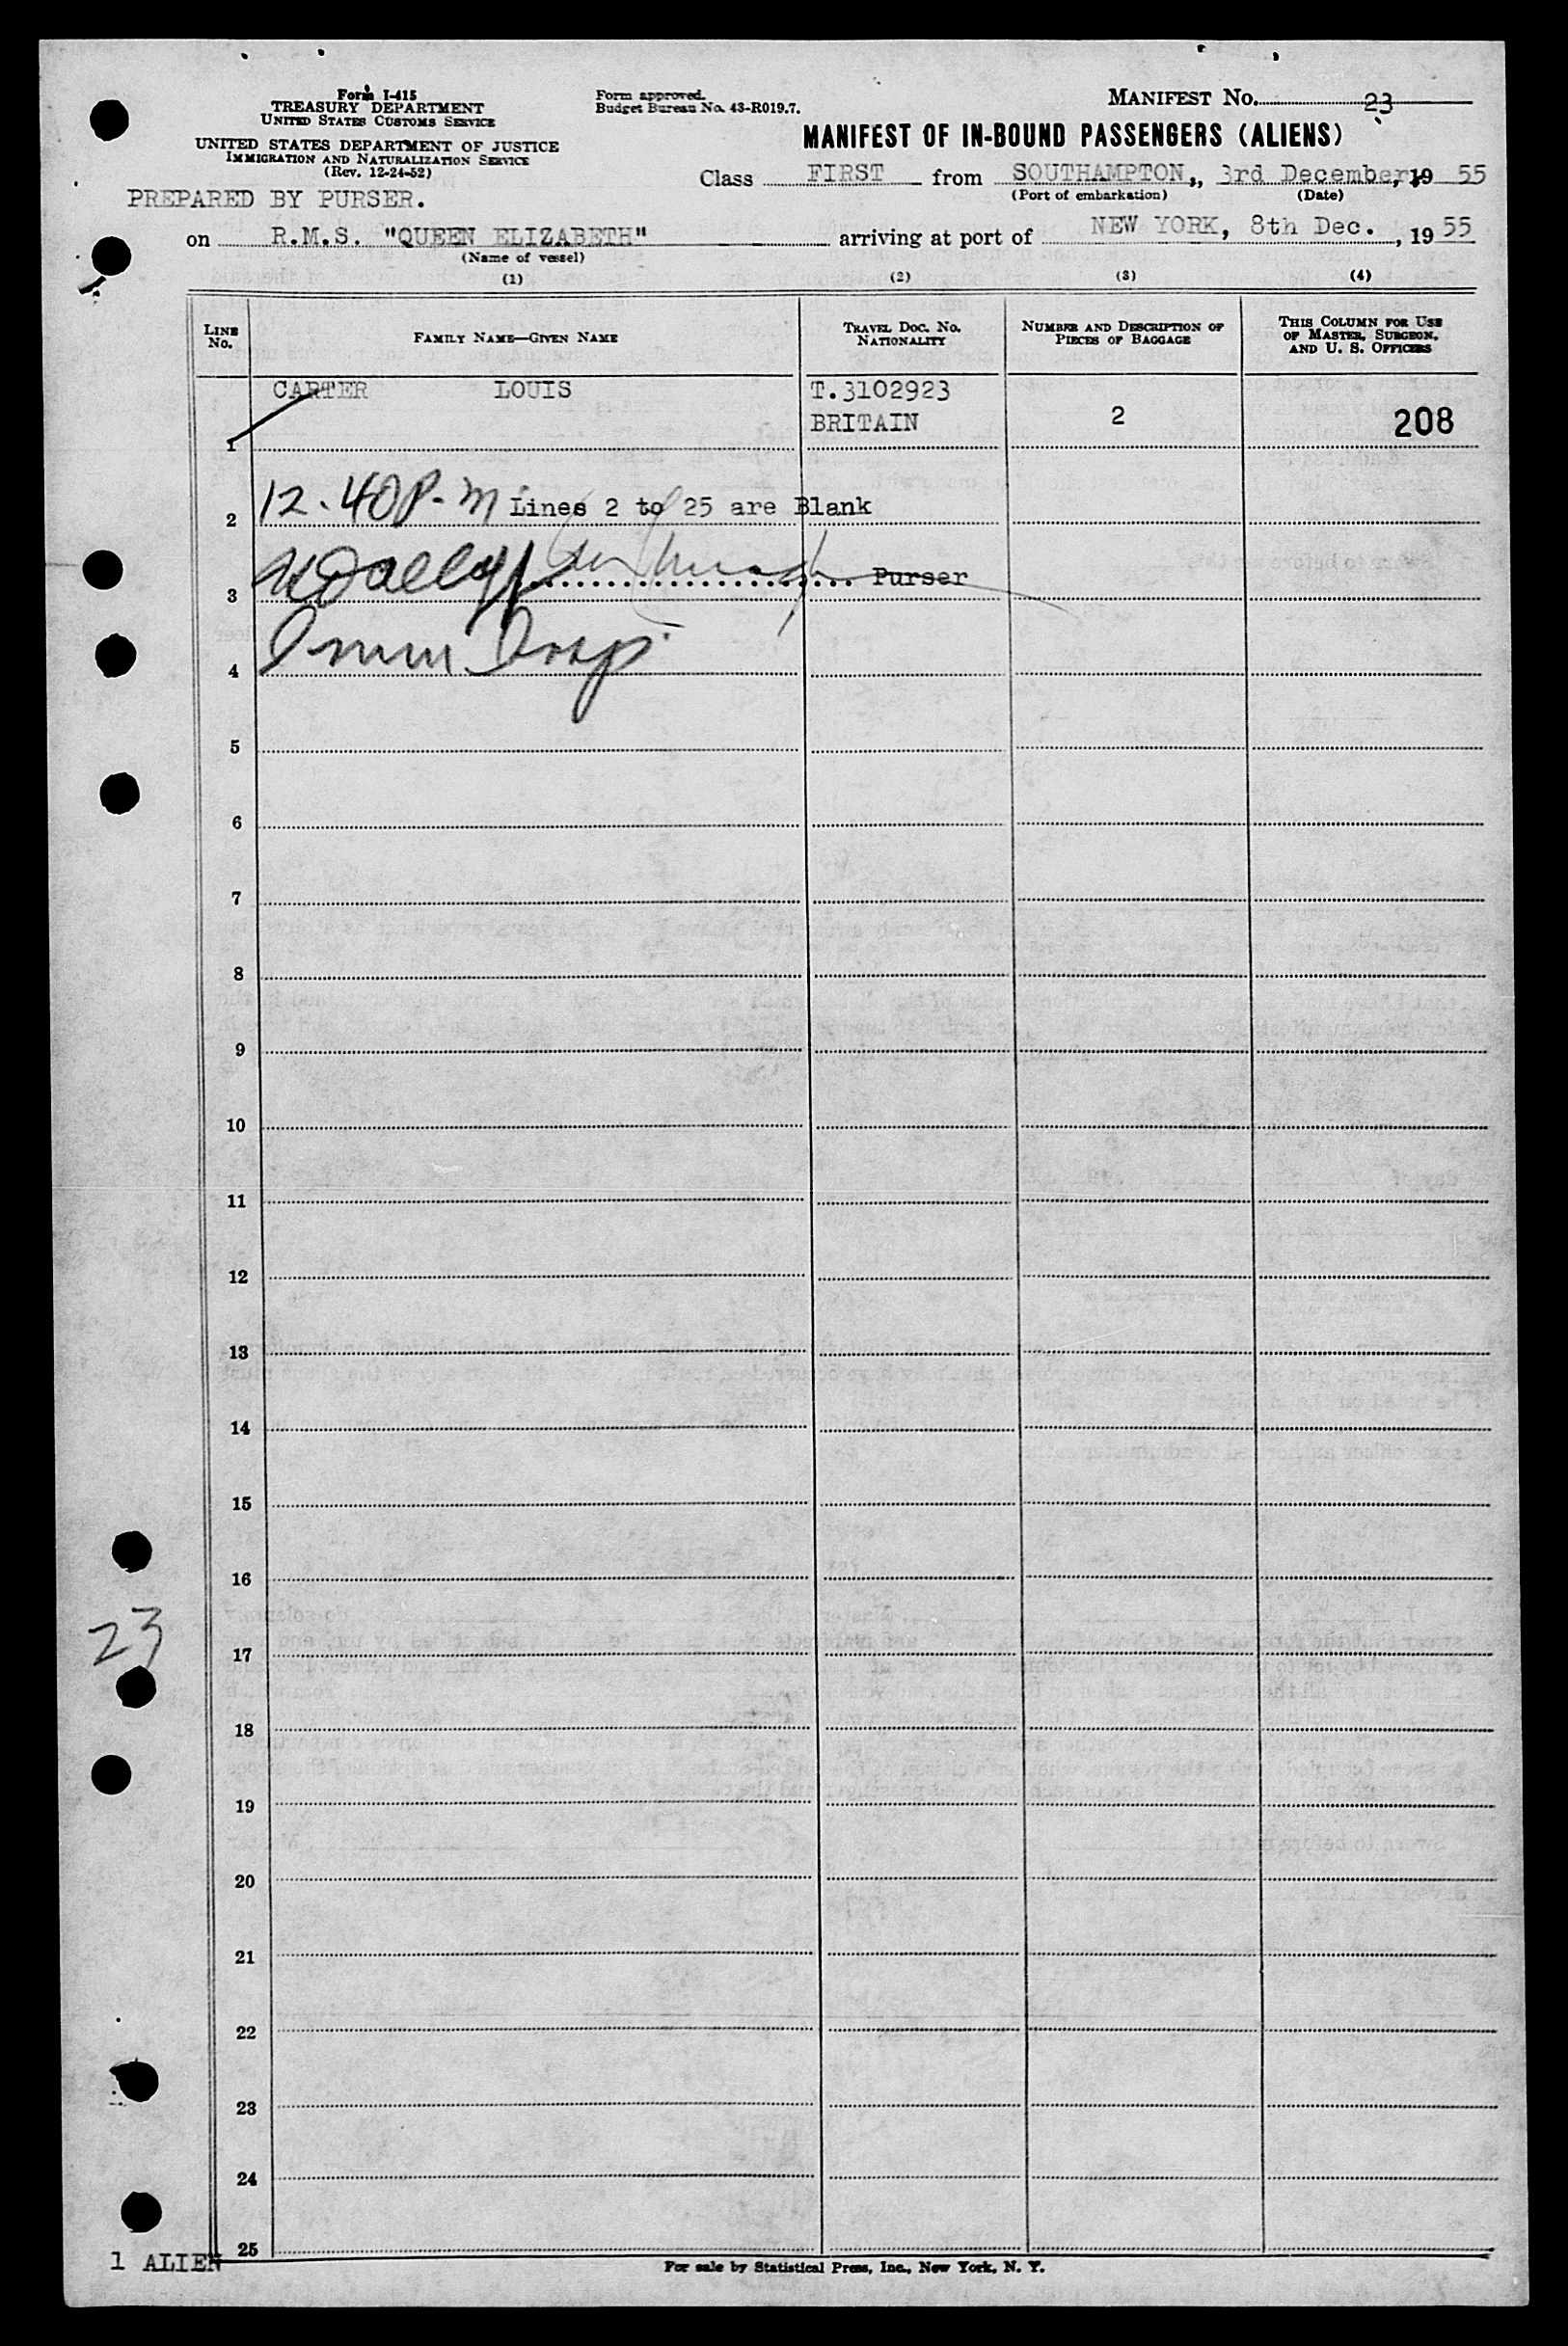 Form I-415
TREASURY DEPARTMENT
UNITED STATES CUSTOMS SERVICE
UNITED STATES DEPARTMENT OF JUSTICE
IMMIGRATION AND NATURALIZATION SERVICE
(Rev. 12-24-52)
Form approved.
Budget Bureau No. 43-R019.7.
MANIFEST No. 23
MANIFEST OF IN-BOUND PASSENGERS (ALIENS)
Class FIRST from SOUTHAMPTON,, 3rd December, 19 55
(Port of embarkation) (Date)
PREPARED BY PURSER.
on R.M.S. "QUEEN ELIZABETH" arriving at port of NEW YORK, 8th Dec. , 19 55
(Name of vessel)
(1) (2) (3) (4)
LINE No. FAMILY NAME—GIVEN NAME TRAVEL DOC. No. NATIONALITY NUMBER AND DESCRIPTION OF PIECES OF BAGGAGE THIS COLUMN FOR USE OF MASTER, SURGEON, AND U. S. OFFICERS
CARTER LOUIS T.3102923
1 BRITAIN 2 208
2 12.40 P.M Lines 2 to 25 are Blank
3 Purser
4 Imm Insp.
5
6
7
8
9
10
11
12
13
14
15
16
23
17
18
19
20
21
22
23
24
25
1 ALIEN
For sale by Statistical Press, Inc., New York, N. Y.